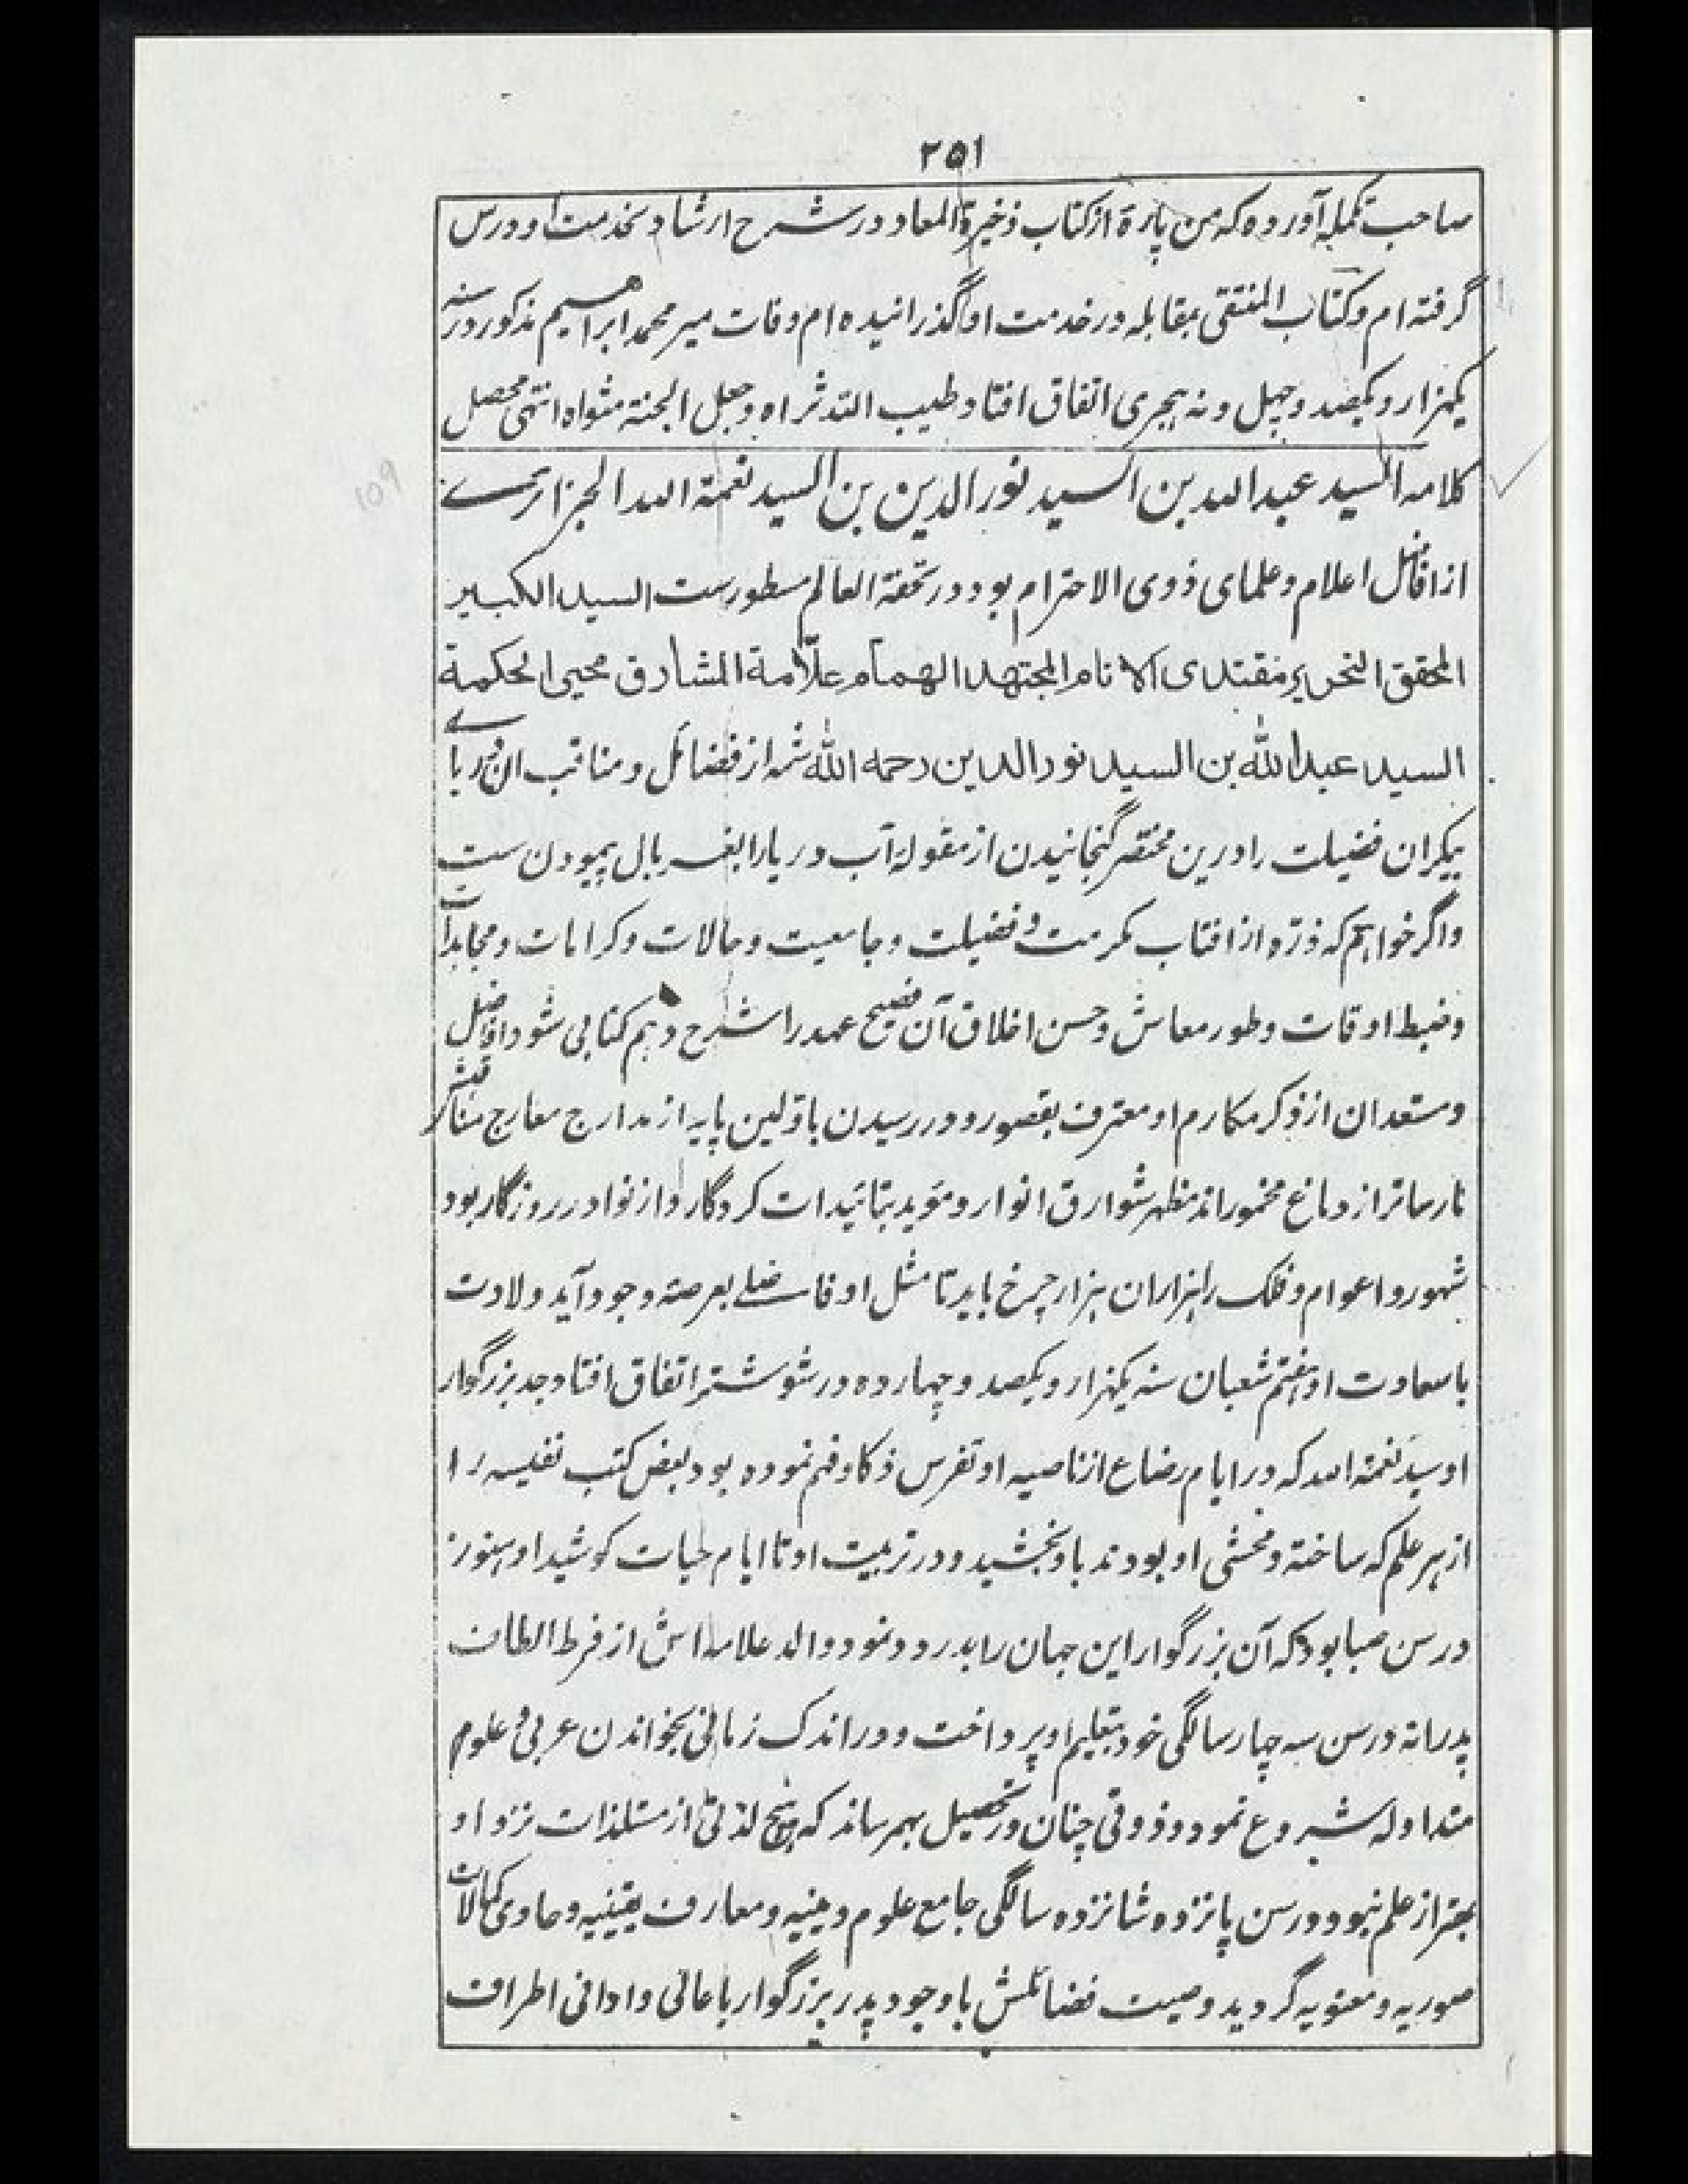 ٢٥١
صاحب تکمله آورده که من پارهٔ از کتاب ذخیرة المعاد در شرح ارشاد بخدمت او درس
گرفته ام و کتاب المنتقی بمقابله در خدمت او گذرانیده ام وفات میر محمد ابراهیم مذکور در سنه
یکهزار و یکصد و چهل و نه هجری اتفاق افتاد طیب الله ثراه و جعل الجنة مثواه انتهی محصل
کلامه السید عبد الله بن السید نور الدین بن السید نعمة الله الجزائری
از افاضل اعلام و علمای ذوی الاحترام بود در تحفة العالم مسطورست السید الکبیر
المحقق النحریر مقتدای الانام المجتهد الهمام علّامة المشارق محیی الحکمة
السید عبد الله بن السید نور الدین رحمه الله شمه از فضائل و مناقب آن دریای
بیکران فضیلت را درین مختصر گنجانیدن از مقوله آب دریا را بغربال پیمودن ست
و اگر خواهم که ذرّه از افتاب مکرمت و فضیلت و جامعیت و حالات و کرامات و مجاهدات
و ضبط اوقات و طور معاش و حسن اخلاق آن فصیح عهد را شرح دهم کتابی شود افاضل
و مستعدان از ذکر مکارم او معترف بقصور و در رسیدن باوّلین پایه از مدارج معارج مناقبش
نارساتر از دماغ مخموراند مظهر شوارق انوار و مؤید بتائیدات کردگار و از نوادر روزگار بود
شهور و اعوام و فلک را هزاران هزار چرخ باید تا مثل او فاضلی بعرصه وجود آید ولادت
با سعادت او هفتم شعبان سنه یکهزار و یکصد و چهارده در شوشتر اتفاق افتاد جد بزرگوار
او سید نعمة الله که در ایام رضاع از ناصیه او تفرس ذکا و فهم نموده بود بعض کتب نفیسه را
از هر علم که ساخته و محشی او بودند باو بخشید و در تربیت او تا ایام حیات کوشید او هنوز
در سن صبا بود که آن بزرگوار این جهان را بدرود نمود و والد علامه اش از فرط الطاف
پدرانه در سن سه چهار سالگی خود بتعلیم او پرداخت و در اندک زمانی بخواندن عربی و علوم
متداوله شروع نمود و ذوقی چنان در تحصیل بهمرساند که هیچ لذتی از مستلذات نزد او
بهتر از علم نبود در سن پانزده شانزده سالگی جامع علوم دینیه و معارف یقینیه و حاوی کمالات
صوریه و معنویه گردید و صیت فضائلش با وجود پدر بزرگوار باعالی و ادانی اطراف